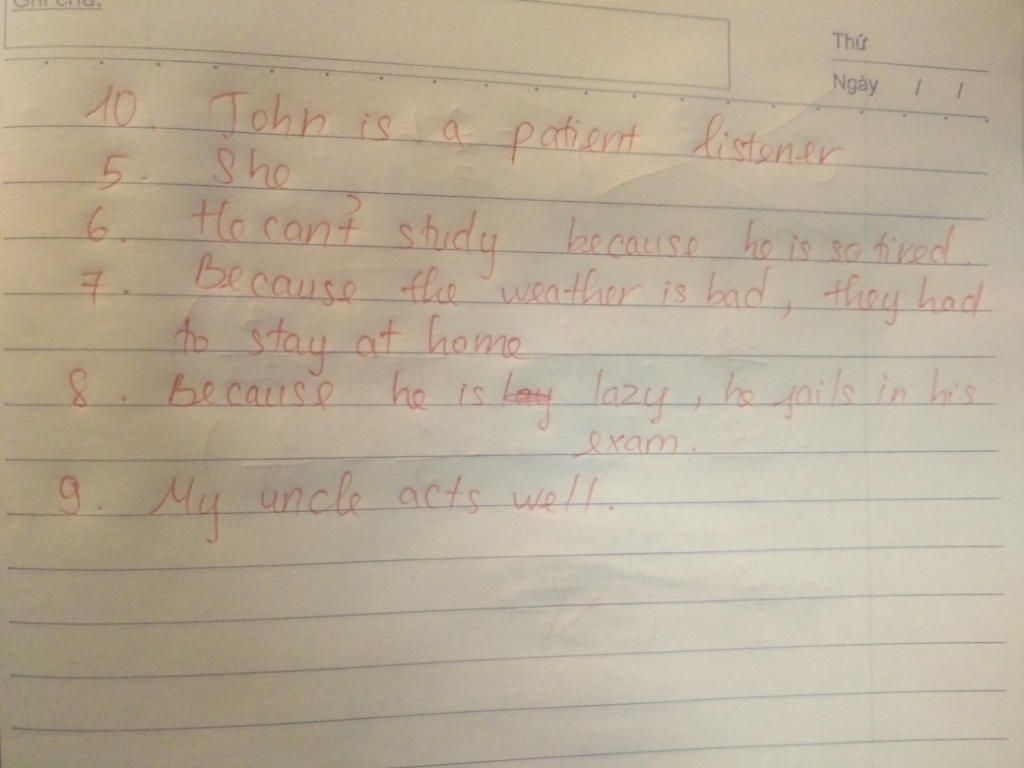 Ghi chú:
Thứ
Ngày / /
10. John is a patient listener
5. She
6. He can't study because he is so tired.
7. Because the weather is bad, they had
to stay at home
8. Because he is lazy, he fails in his
exam.
9. My uncle acts well.